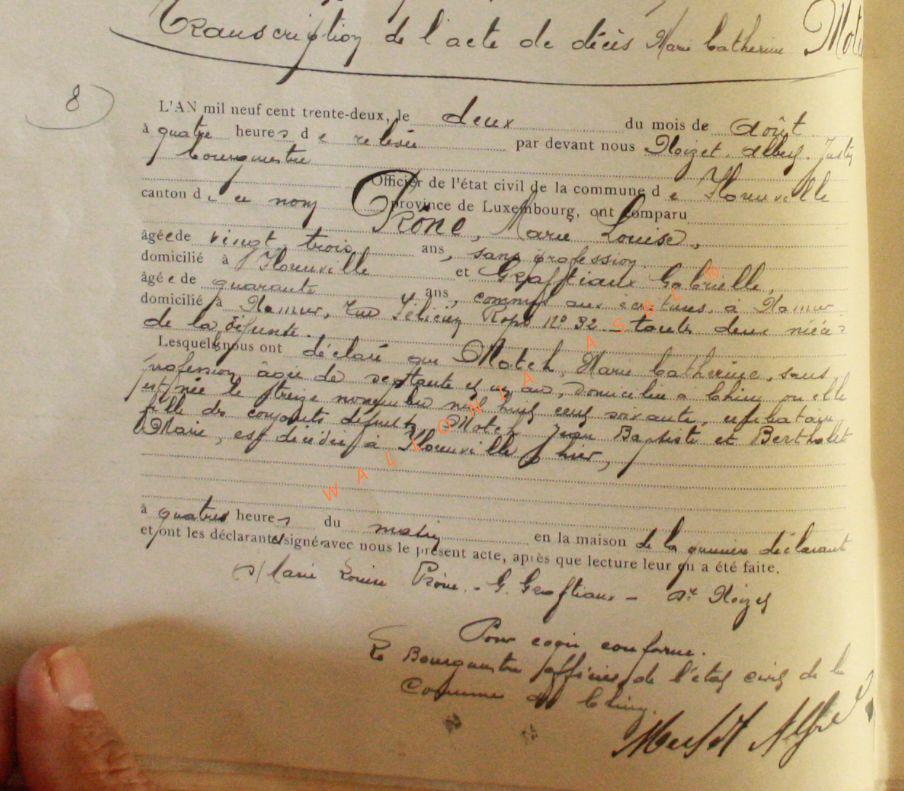 Transcription de l'acte de décès Marie Catherine
8
L'AN mil neuf cent trente-deux, le deux du mois de Août
à quatre heures de relevée par devant nous Noizet, Albert, Justin
bourgmestre
Officier de l'état civil de la commune de Florenville
canton de ce nom province de Luxembourg, ont comparu
Prône, Marie Louise,
âgée de vingt trois ans, sans profession
domicilié à Florenville et Graftiaux Gabrielle,
âgée de quarante ans, commis aux écritures, à Namur
domicilié à Namur, rue Félicien Rops N° 32 toutes deux nièces
de la défunte.
Lesquels nous ont déclaré que Motch, Marie Catherine, sans
profession, agée de septante et un ans, domiciliée à Chiny où elle
est née le treize novembre mil huit cent soixante, célibataire,
fille des conjoints défunts Motch Jean Baptiste et Bertholet
Marie, est décédée à Florenville hier,
à quatre heures du matin en la maison de la première déclarante
et ont les déclarantes signé avec nous le présent acte, après que lecture leur en a été faite.
s/ Marie Louise Prône. - G. Graftiaux - Noizet
Pour copie conforme.
Le Bourgmestre officier de l'état civil de la
Commune de Chiny.
WALLONIA ASBL